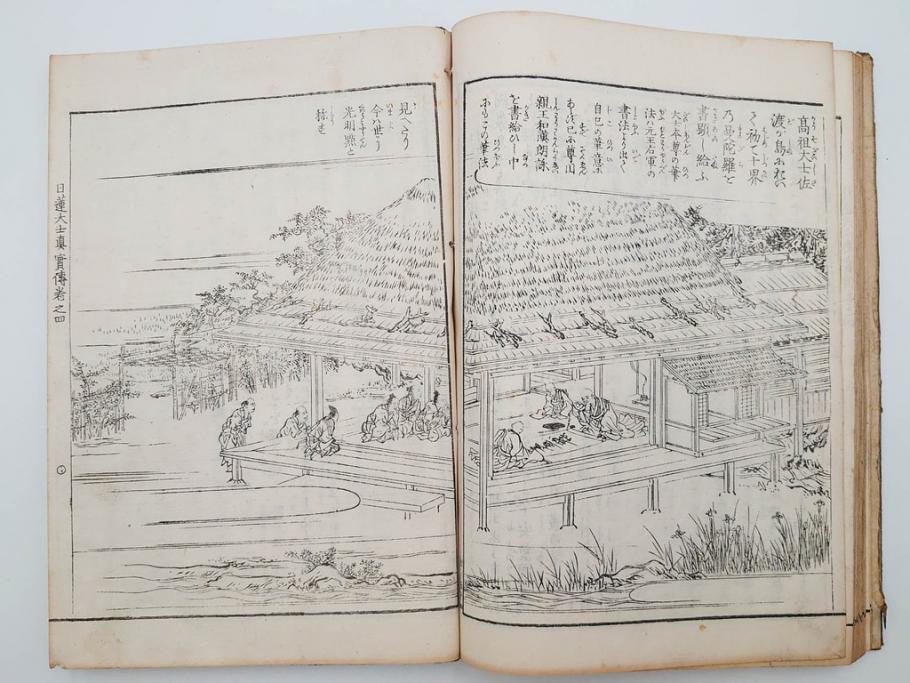 高祖大士佐
渡が島において
初て十界
乃曼陀羅を
書顕し給ふ
大士本尊の筆
法ハ元王右軍の
書法より出て
自己の筆意
尊円
親王和漢朗詠
を書給ひし中
にもこの筆法
見へたり
今ハ世より
光明點と
称す
日蓮大士真實傳巻之四